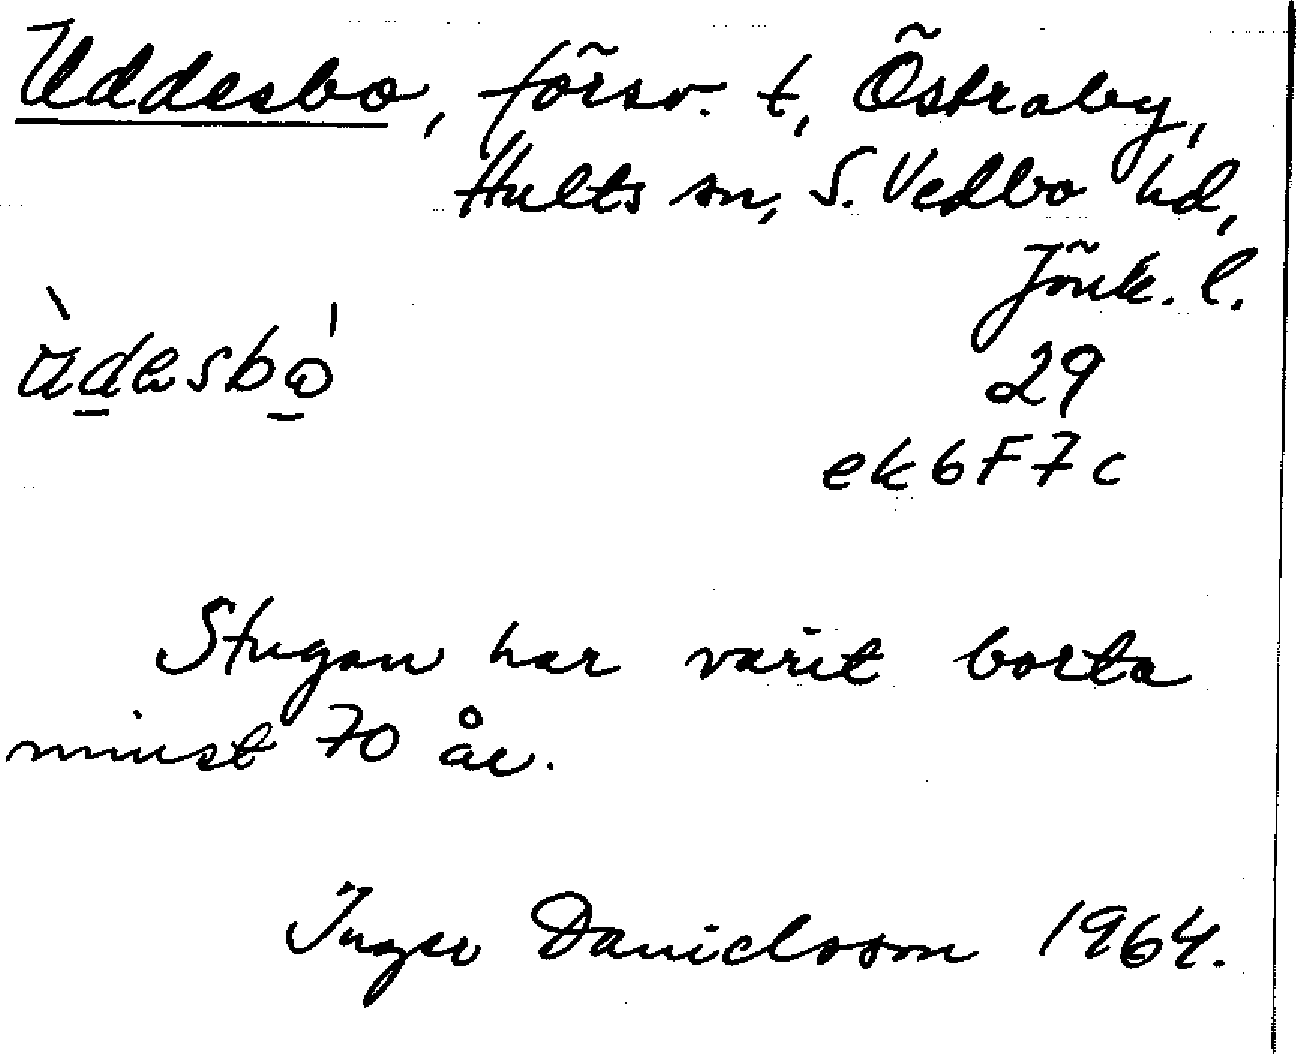 Uddesbo, försv. t, Östraby,
Hults sn, S. Vedbo hd,
Jönk. l.
29
ek 6F7c
Stugan har varit borta
minst 70 år.
Inger Danielsson 1964.